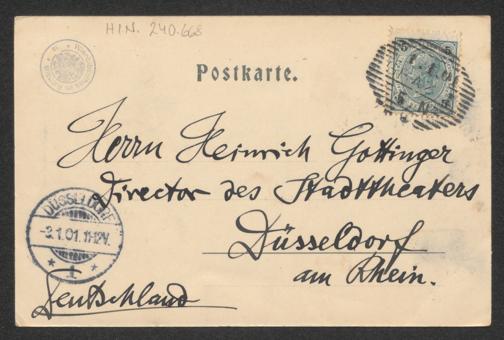 H.I.N. 240.668
Postkarte.
Herrn Heinrich Gottinger
Director des Stadttheaters
Düsseldorf
am Rhein.
Deutschland
DÜSSELDORF
-3.1.01.11-12V.
1